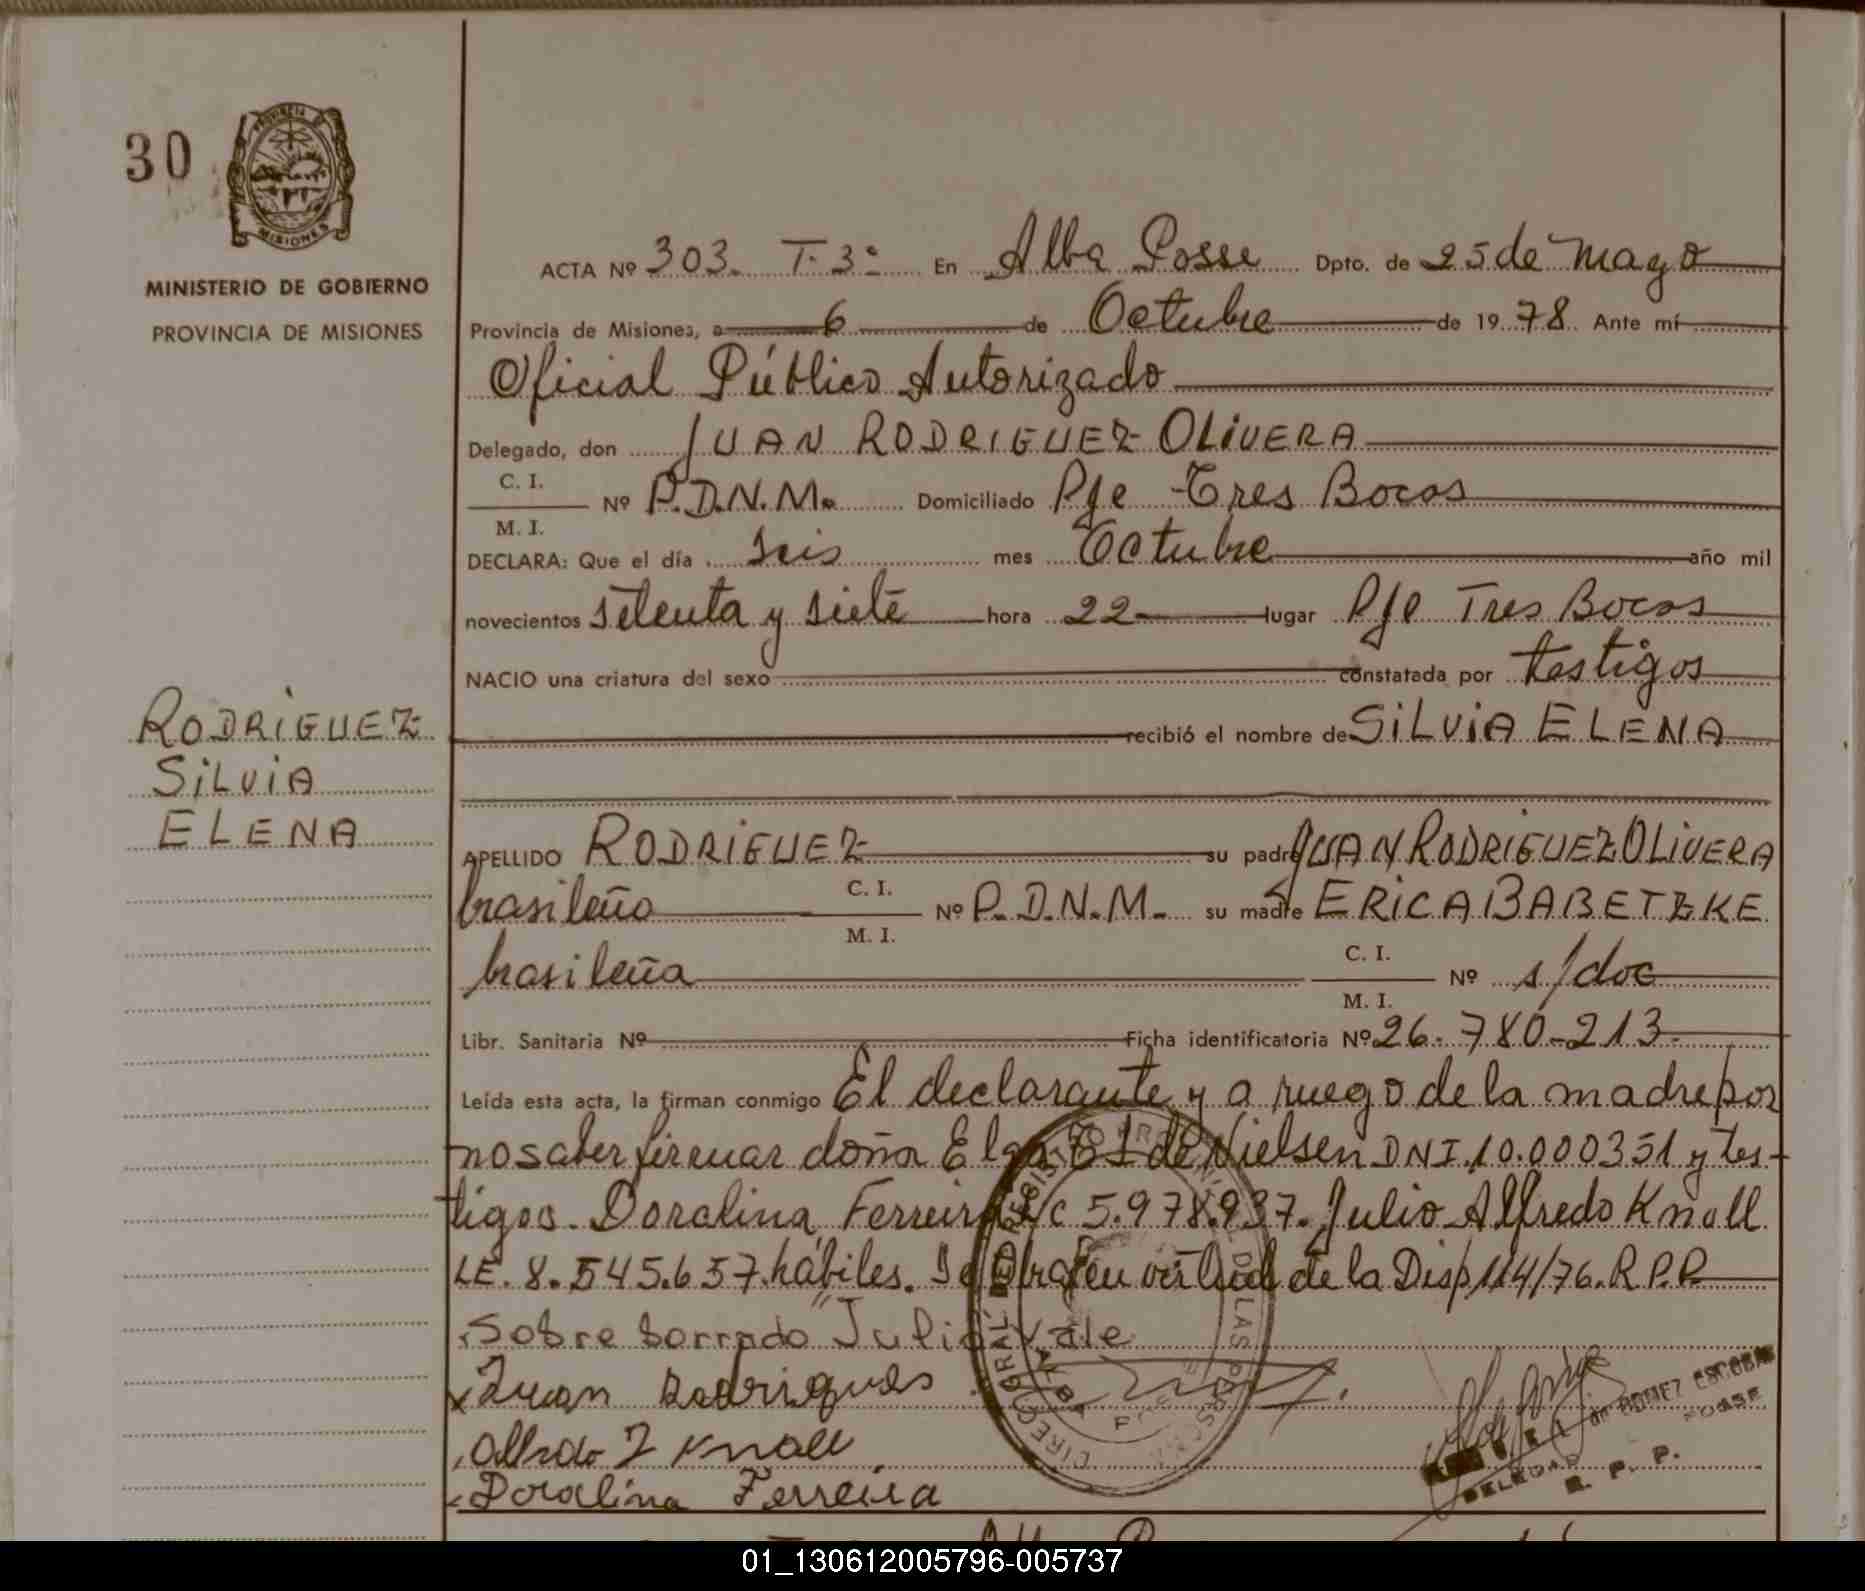 30
PROVINCIA DE
MISIONES
MINISTERIO DE GOBIERNO
PROVINCIA DE MISIONES
ACTA Nº 303. T. 3º En Alba Posse Dpto. de 25 de Mayo
Provincia de Misiones, a 6 de Octubre de 1978 Ante mí
Oficial Público Autorizado
Delegado, don JUAN RODRIGUEZ OLIVERA
C. I.
Nº P.D.N.M. Domiciliado Pje Tres Bocas
M. I.
DECLARA: Que el día seis mes Octubre año mil
novecientos setenta y siete hora 22 lugar Pje Tres Bocas
NACIO una criatura del sexo constatada por testigos
recibió el nombre de SILVIA ELENA
RODRIGUEZ
SILVIA
ELENA
APELLIDO RODRIGUEZ su padre JUAN RODRIGUEZ OLIVERA
brasileño C. I. Nº P.D.N.M. su madre ERICA BABETZKE
M. I.
brasileña C. I. Nº s/doc
M. I.
Libr. Sanitaria Nº Ficha identificatoria Nº 26.780.213
Leída esta acta, la firman conmigo El declarante y a ruego de la madre por
no saber firmar doña Elga de Nielsen DNI.10.000351 y tes-
tigos. Doralina Ferreira 5.978.937. Julio Alfredo Knoll
LE. 8.545.657. hábiles. Se labra en virtud de la Disp 114/76. R.P.P.
Sobre borrado "Julio" vale
Juan Rodrigues
Alfredo J Knoll
Doralina Ferreira
GOMEZ ESCOBAR
POSSE
R. P. P.
01_130612005796-005737